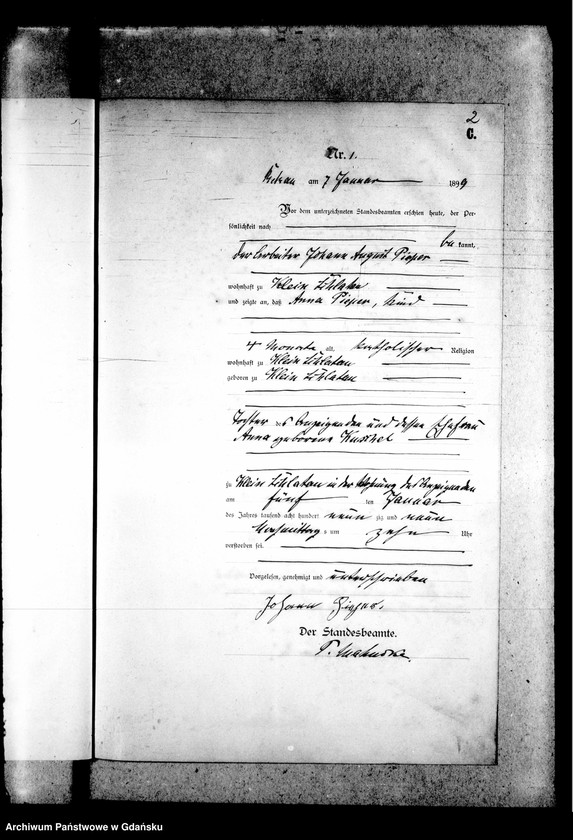 2
C.
Nr. 1.
am 7 Januar 1899
Vor dem unterzeichneten Standesbeamten erschien heute, der Per-
sönlichkeit nach
be kannt,
der Arbeiter Johann August Pieper
wohnhaft zu Klein
und zeigte an, daß Anna Pieper, Kind
4 Monate alt, katholischer Religion
wohnhaft zu Klein
geboren zu Klein
Tochter des Anzeigenden und dessen Ehefrau
Anna geborene
zu Klein in der Wohnung des Anzeigenden
am fünf ten Januar
des Jahres tausend acht hundert neun zig und neun
Vormittags um zehn Uhr
verstorben sei.
Vorgelesen, genehmigt und unterschrieben
Johann
Der Standesbeamte.
Archiwum Państwowe w Gdańsku